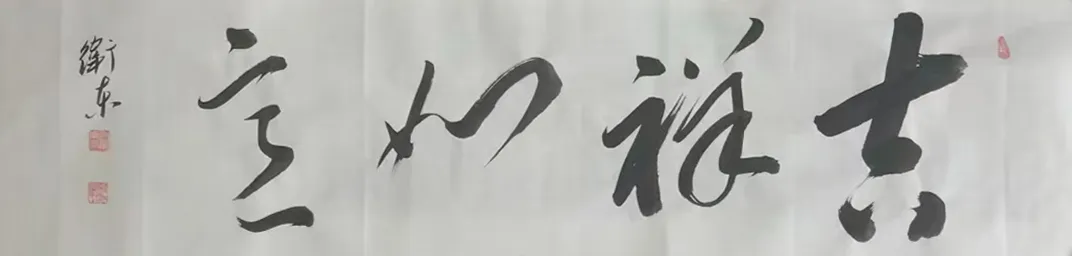 吉祥如意
衛东